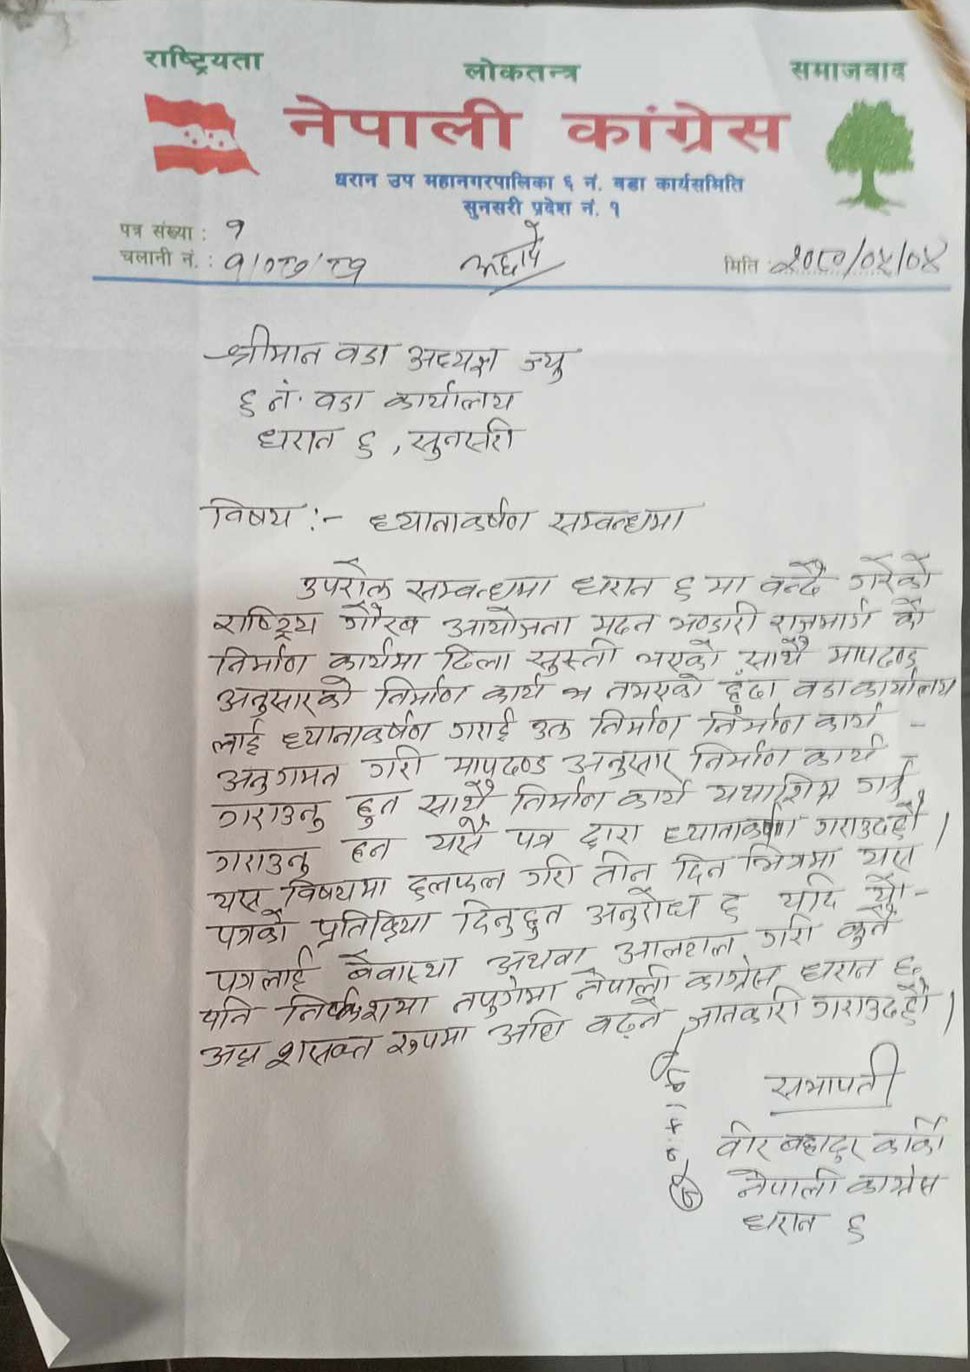 राष्ट्रियता लोकतन्त्र समाजवाद
नेपाली कांग्रेस
धरान उप महानगरपालिका ६ नं. वडा कार्यसमिति
सुनसरी प्रदेश नं. १
पत्र संख्या : १
चलानी नं. : १/०८०/८१
मिति : २०८०/०४/०४
श्रीमान वडा अध्यक्ष ज्यु
६ नं. वडा कार्यालय
धरान ६, सुनसरी
विषय :- ध्यानाकर्षण सम्वन्धमा
उपरोक्त सम्वन्धमा धरान ६ मा वन्दै गरेको
राष्ट्रिय गौरब आयोजना मदन भण्डारी राजमार्ग को
निर्माण कार्यमा ढिला सुस्ती भएको साथै मापदण्ड
अनुसारको निर्माण कार्य नभएको हुँदा वडा कार्यालय
लाई ध्यानाकर्षण गराई उक्त निर्माण निर्माण कार्य -
अनुगमन गरी मापदण्ड अनुसार निर्माण कार्य -
गराउनु हुन साथै निर्माण कार्य यथाशिघ्र गर्नु,
गराउनु हुन यसै पत्र द्वारा ध्यानाकर्षण गराउदछौ ।
यस विषयमा छलफल गरी तीन दिन भित्रमा यस
पत्रको प्रतिक्रिया दिनुहुन अनुरोध छ यदि यो -
पत्रलाई वेवास्था अथवा आलटाल गरी कुनै
पनि निर्ष्कशमा नपुगेमा नेपाली काग्रेस धरान ६
अझ शसक्त रुपमा अघि वढ्ने जानकारी गराउदछौ ।
सभापती
वीर बहादुर कार्की
नेपाली काग्रेस
धरान ६